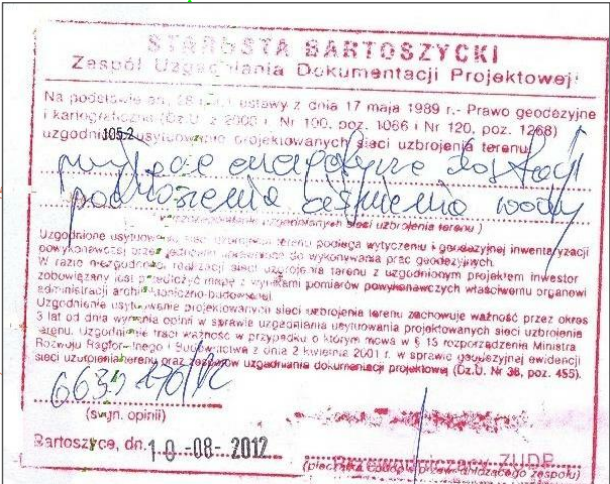 STAROSTA BARTOSZYCKI
Zespół Uzgadniania Dokumentacji Projektowej
Na podstawie art. 28 ust. 1 ustawy z dnia 17 maja 1989 r.- Prawo geodezyjne
i kartograficzne (Dz.U. z 2000 r. Nr 100, poz. 1086 i Nr 120, poz. 1268)
uzgodniono usytuowanie projektowanych sieci uzbrojenia terenu
105.2
przyłącze energetyczne do stacji
podnoszenia ciśnienia wody
uzgodnionych sieci uzbrojenia terenu )
Uzgodnione usytuowanie sieci uzbrojenia terenu podlega wytyczeniu i geodezyjnej inwentaryzacji
powykonawczej przez jednostki do wykonywania prac geodezyjnych.
W razie niezgodności realizacji sieci uzbrojenia terenu z uzgodnionym projektem inwestor
zobowiązany jest przedłożyć mapę z wynikami pomiarów powykonawczych właściwemu organowi
administracji architektoniczno-budowlanej.
Uzgodnienie usytuowanie projektowanych sieci uzbrojenia terenu zachowuje ważność przez okres
3 lat od dnia wydania opinii w sprawie uzgodnienia usytuowania projektowanych sieci uzbrojenia
terenu. Uzgodnienie traci ważność w przypadku o którym mowa w § 15 rozporządzenia Ministra
Rozwoju Regionalnego i Budownictwa z dnia 2 kwietnia 2001 r. w sprawie geodezyjnej ewidencji
sieci uzbrojenia terenu oraz zespołów uzgadniania dokumentacji projektowej (Dz.U. Nr 38, poz. 455).
(sygn. opinii)
Bartoszyce, dn. 10 -08- 2012
Przewodniczący ZUDP